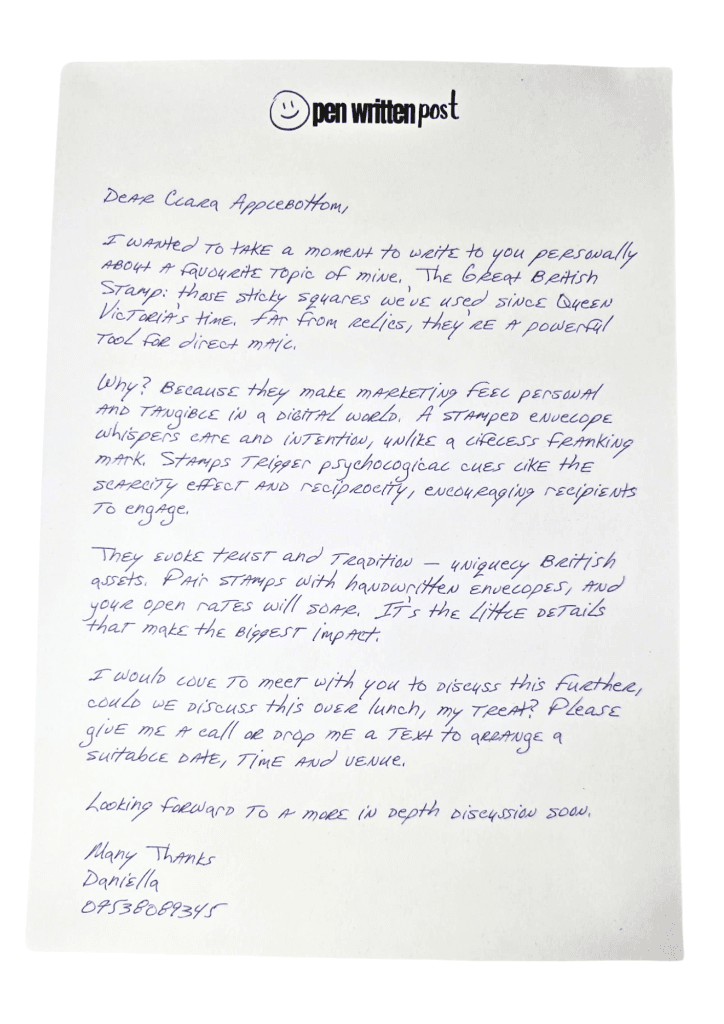 pen written post
Dear Clara Applebottom,
I wanted to take a moment to write to you personally
about a favourite topic of mine. The Great British
Stamp: those sticky squares we've used since Queen
Victoria's time. Far from relics, they're a powerful
tool for direct mail.
Why? Because they make marketing feel personal
and tangible in a digital world. A stamped envelope
whispers care and intention, unlike a lifeless franking
mark. Stamps trigger psychological cues like the
scarcity effect and reciprocity, encouraging recipients
to engage.
They evoke trust and tradition – uniquely British
assets. Pair stamps with handwritten envelopes, and
your open rates will soar. It's the little details
that make the biggest impact.
I would love to meet with you to discuss this further,
could we discuss this over lunch, my treat? Please
give me a call or drop me a text to arrange a
suitable date, time and venue.
Looking forward to a more in depth discussion soon.
Many Thanks
Daniella
09538089345